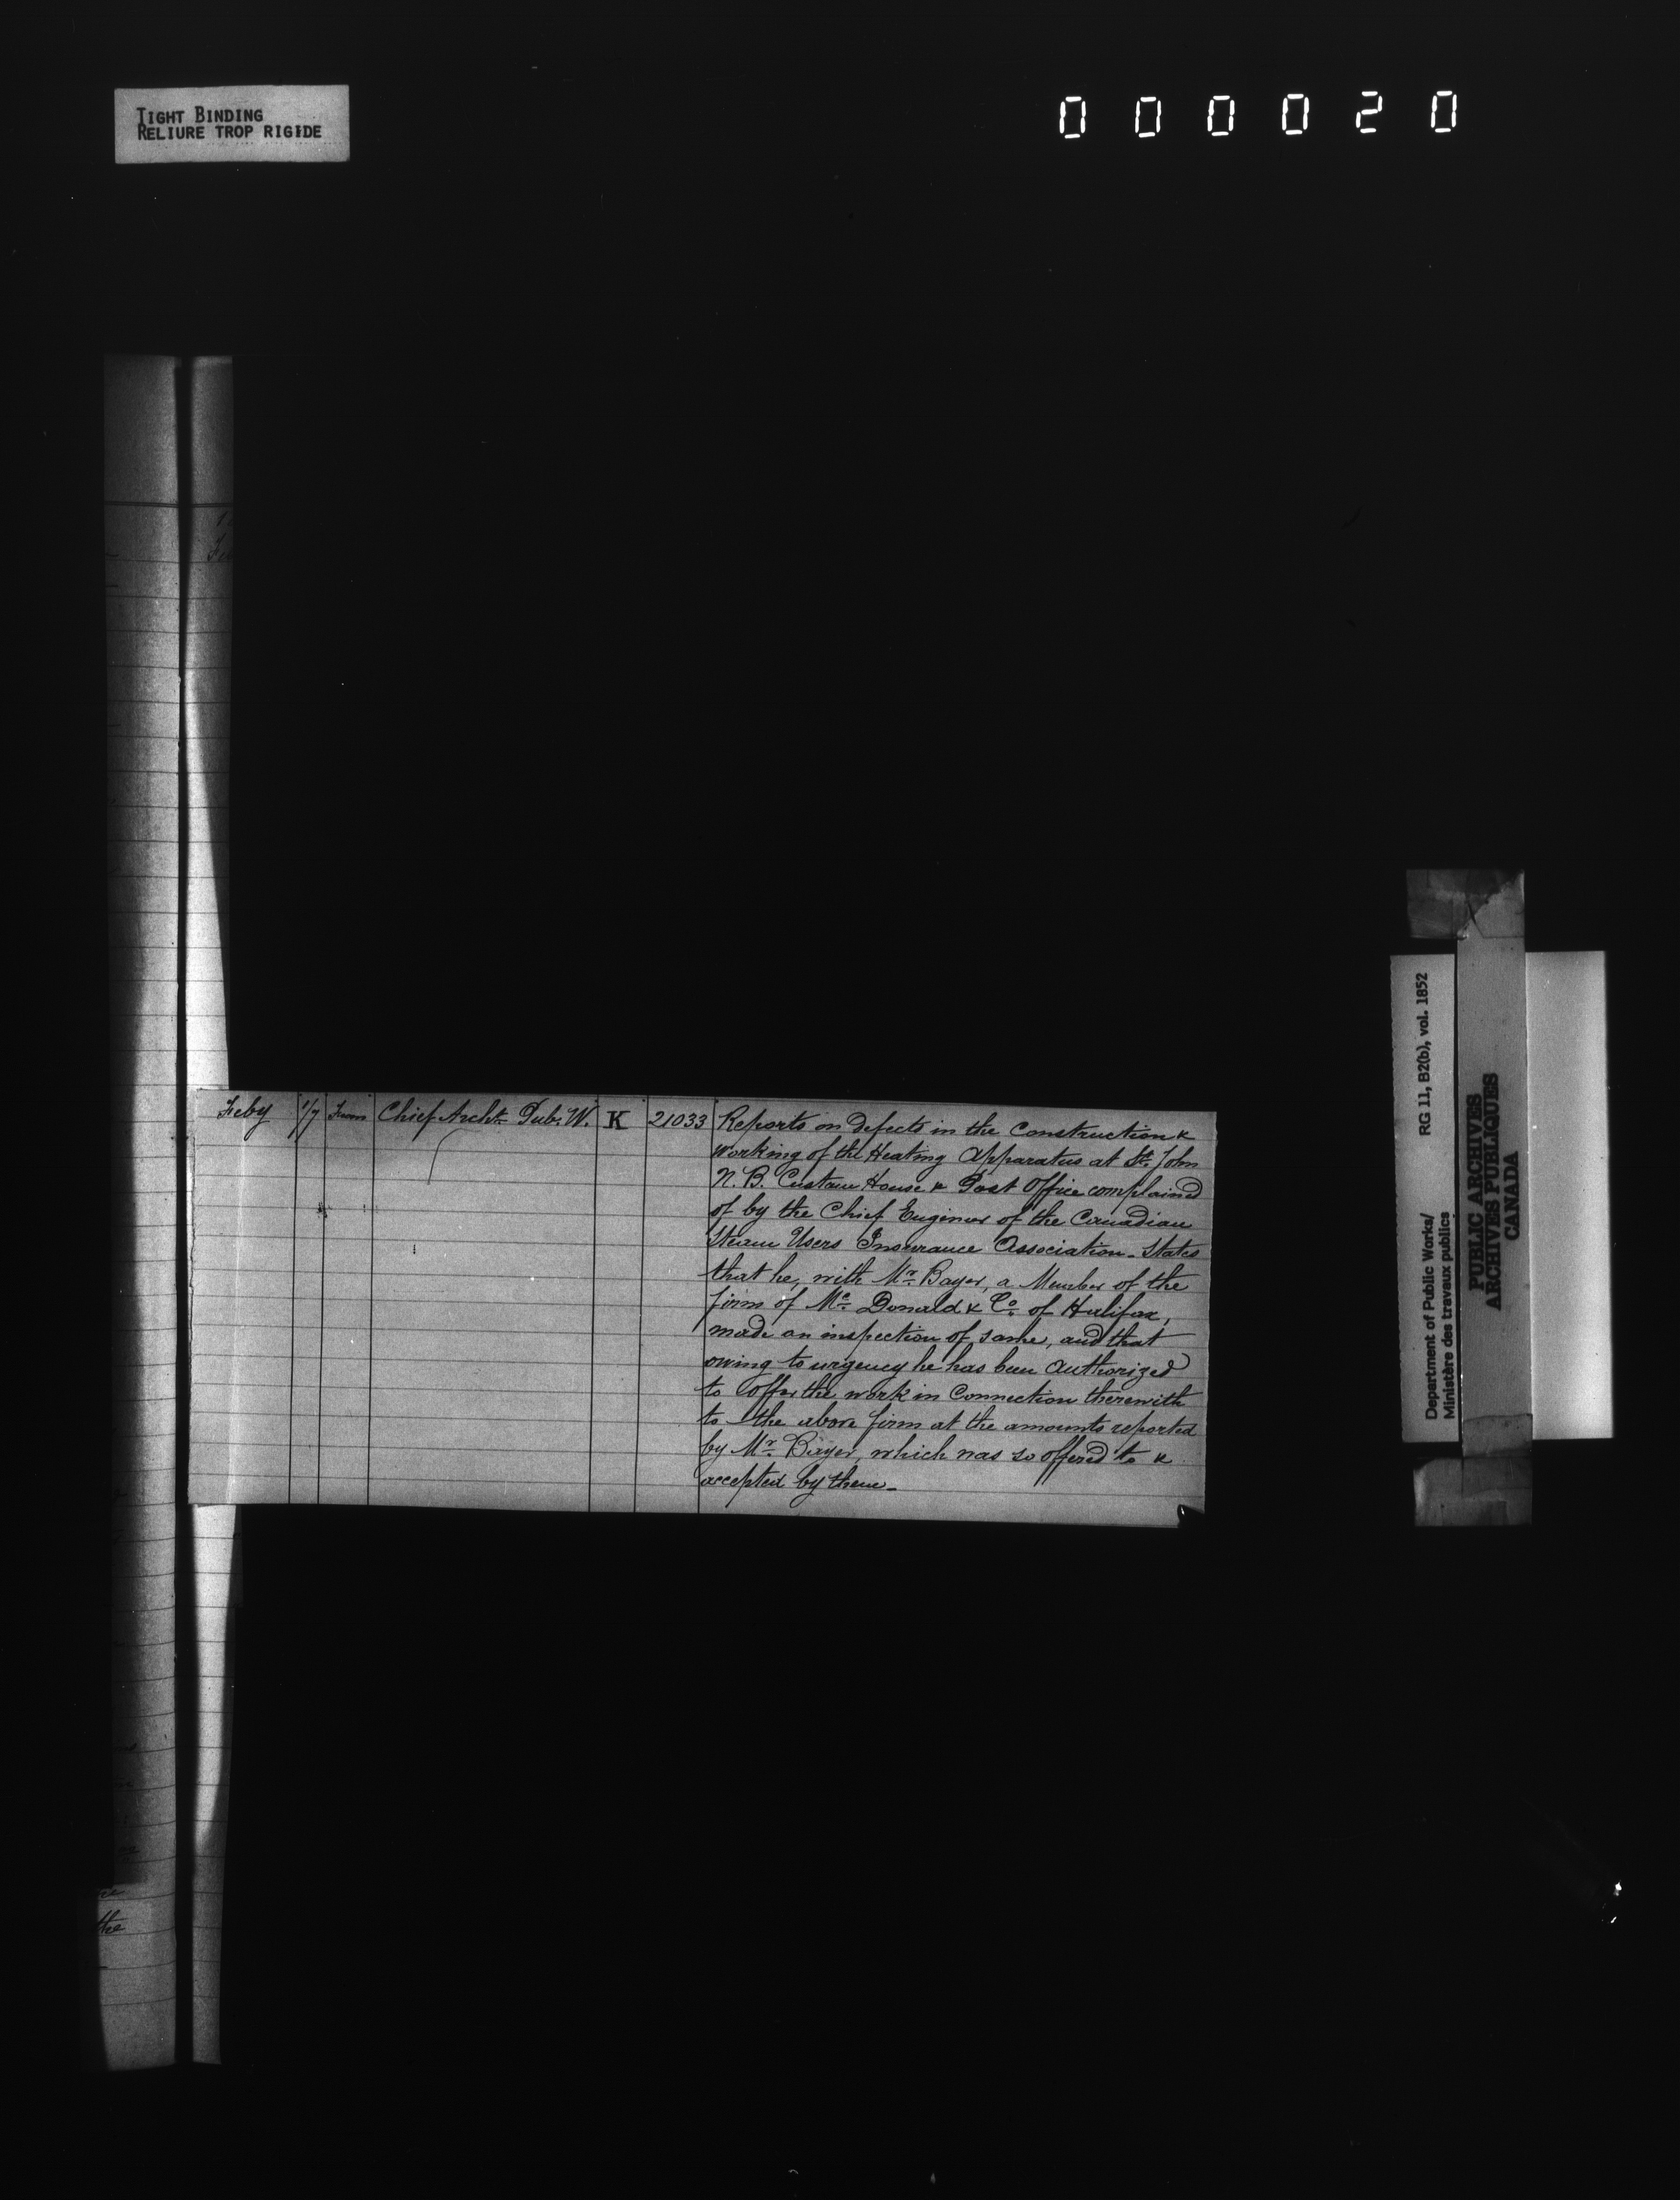 TIGHT BINDING
RELIURE TROP RIGIDE
000020
Feby 1/7 From Chief Archt. Pub. W. K 21033 Reports on defects in the Construction &
working of the Heating Apparatus at St. John
N. B. Custom House & Post Office complained
of by the Chief Engineer of the Canadian
Steam Users Insurance Association - States
that he, with Mr. Bayer, a Member of the
firm of Mc Donald & Co. of Halifax,
made an inspection of same, and that
owing to urgency he has been authorized
to offer the work in Connection therewith
to the above firm at the amounts reported
by Mr. Bayer, which was so offered to &
accepted by them -
the
Department of Public Works/ RG 11, B2(b), vol. 1852
Ministère des travaux publics
PUBLIC ARCHIVES
ARCHIVES PUBLIQUES
CANADA